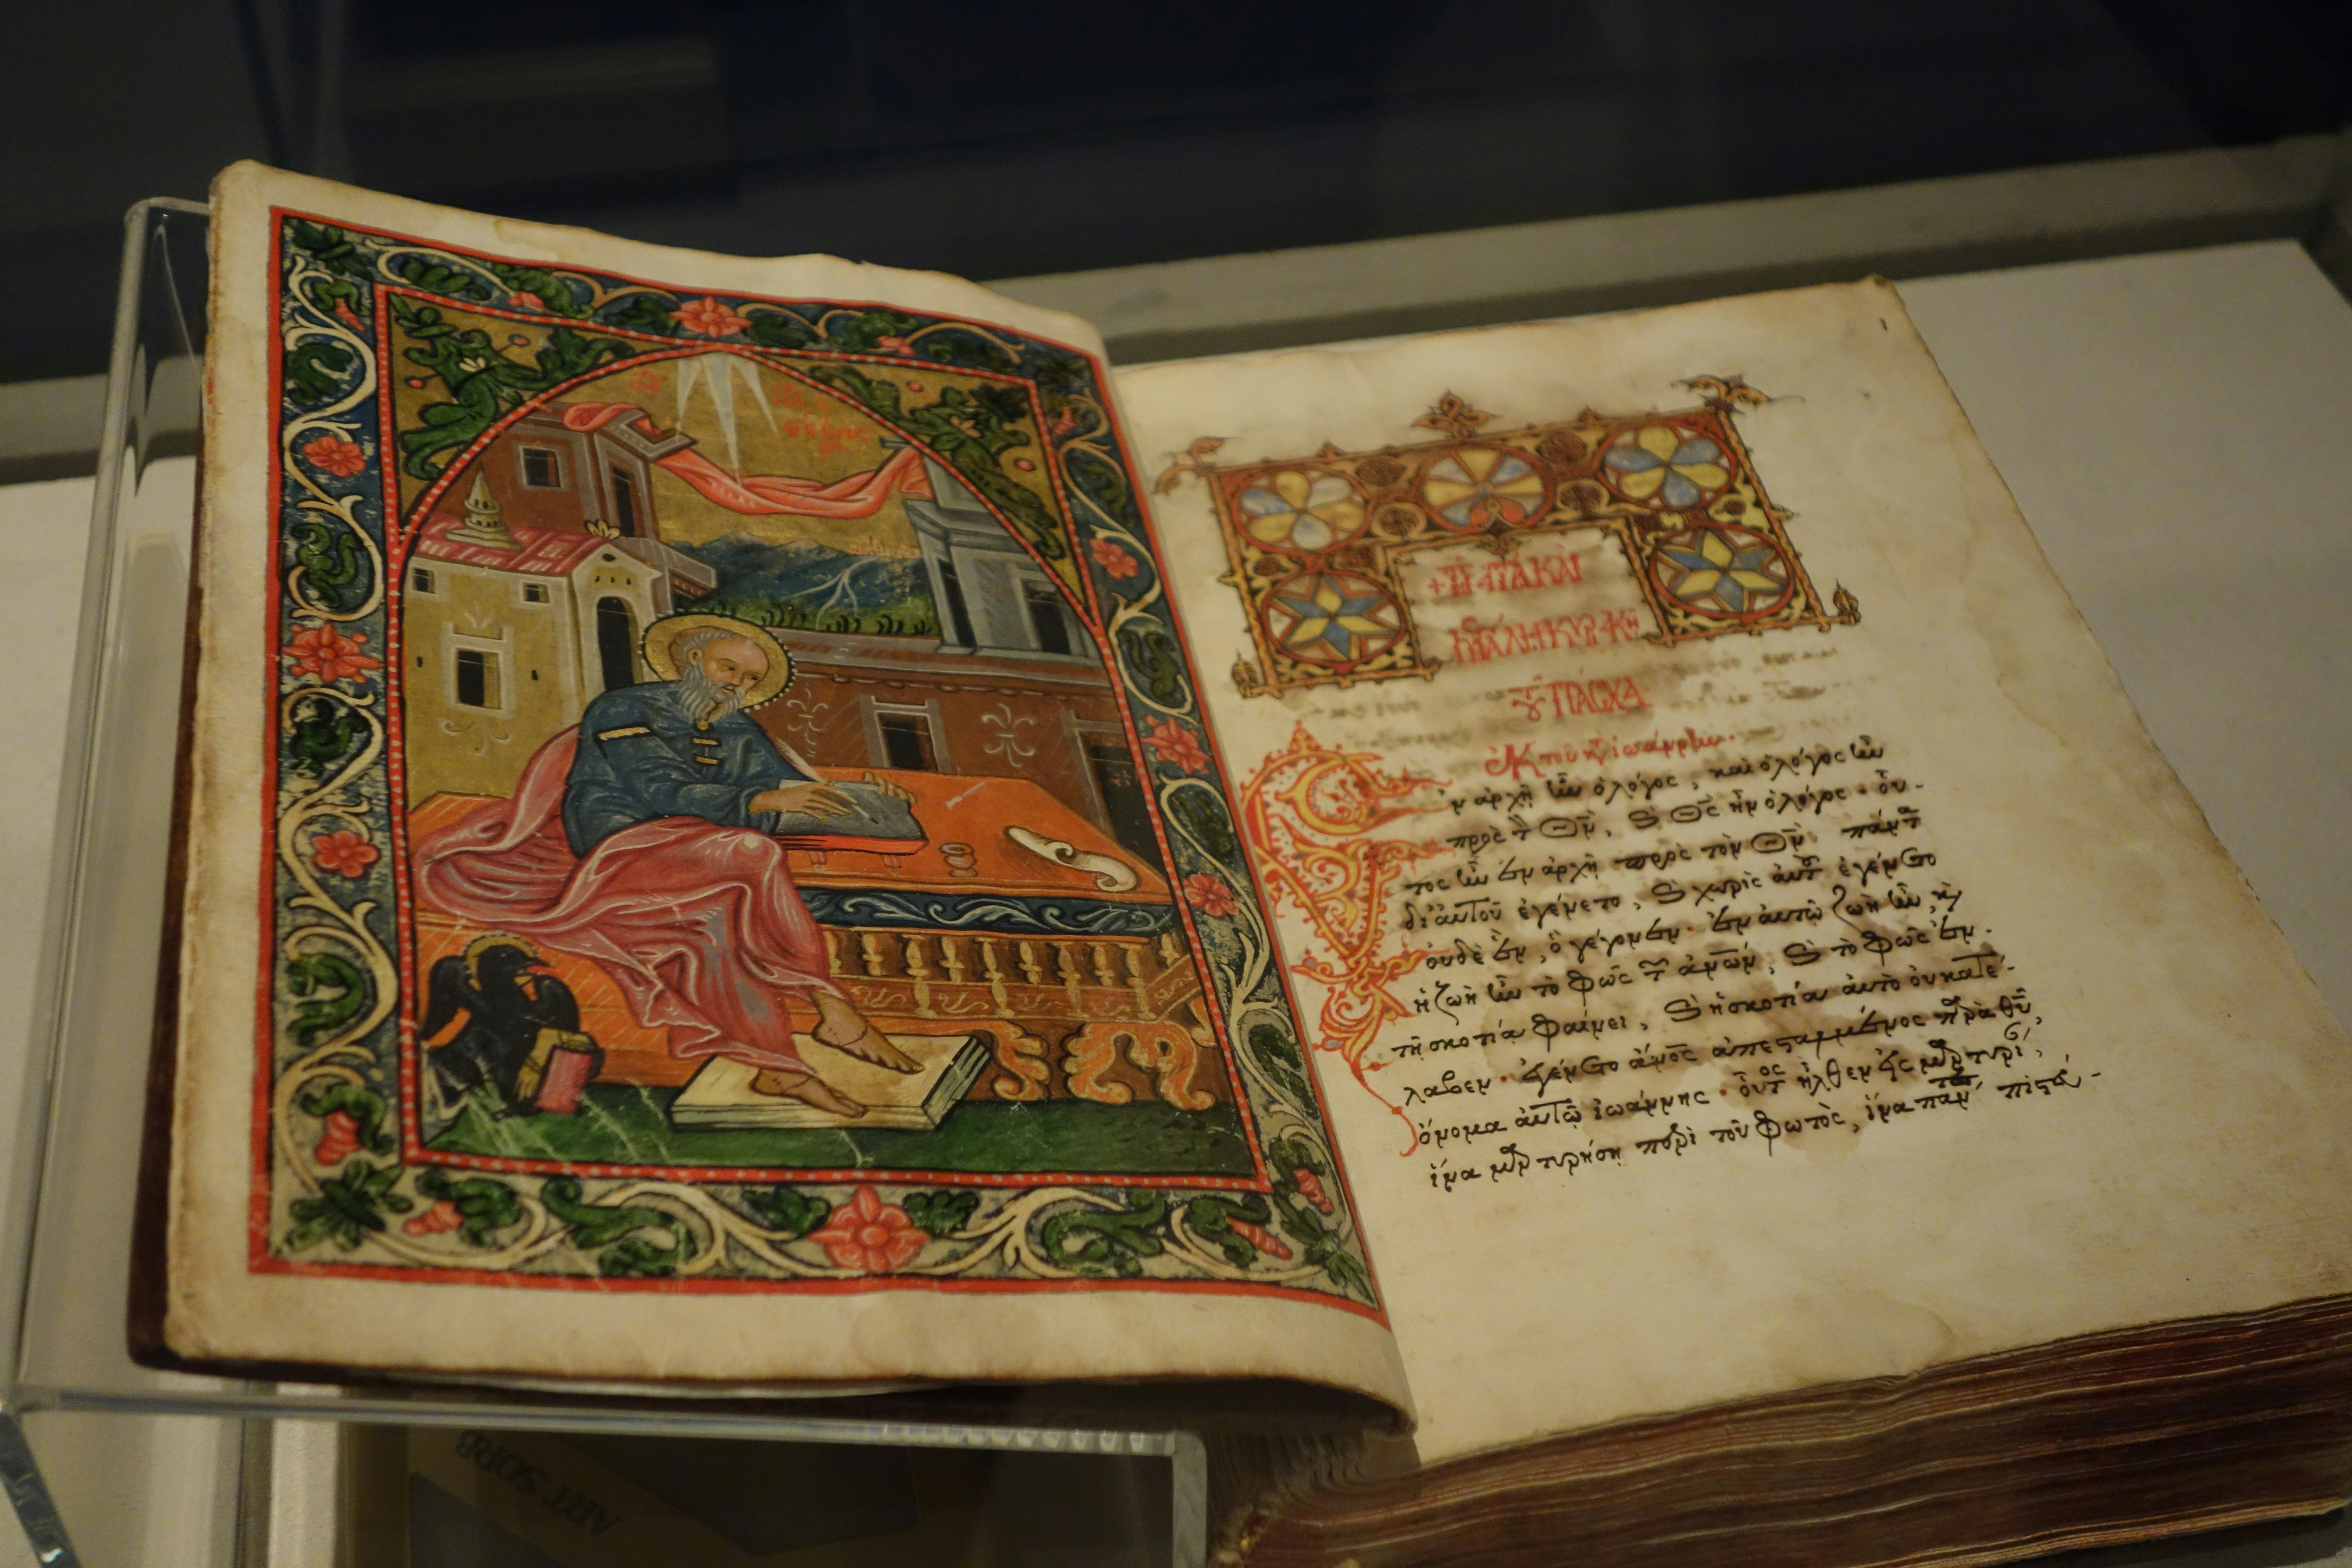 τοῦ ΠΑΣΧΑ
Ἐκ τοῦ κ(ατὰ) ἰωάννην.
Ἐν ἀρχῇ ἦν ὁ λόγος, καὶ ὁ λόγος ἦν
πρὸς τ(ὸν) Θν̄, ϗ Θς̄ ἦν ὁ λόγος · οὗ-
τος ἦν ἐν ἀρχῇ πρὸς τὸν Θν̄· πάντα
δι' αὐτοῦ ἐγένετο, ϗ χωρὶς αὐτοῦ ἐγένετο
οὐδὲ ἕν, ὃ γέγονεν· ἐν αὐτῷ ζωὴ ἦν, ϗ
ἡ ζωὴ ἦν τὸ φῶς τῶν ἀνων̄, ϗ τὸ φῶς ἐν
τῇ σκοτίᾳ φαίνει, ϗ ἡ σκοτία αὐτὸ οὐ κατέ-
λαβεν · ἐγένετο ἄνος̄ ἀπεσταλμένος παρὰ θῡ,
ὄνομα αὐτῷ ἰωάννης · οὗτος ἦλθεν εἰς μαρτυρί,
ἵνα μαρτυρήσῃ περὶ τοῦ φωτὸς, ἵνα πάν πιστεύ-
ART SORB